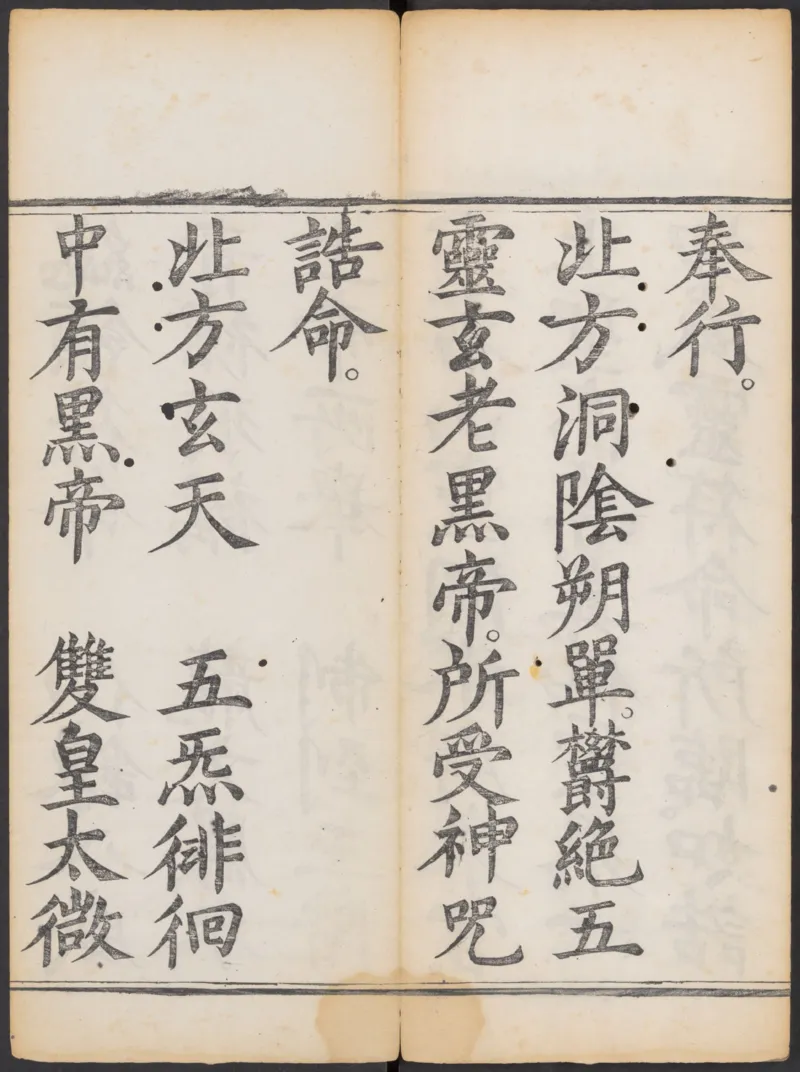 奉行。
北方洞陰朔單。欝絶五
靈玄老黑帝。所受神咒
誥命。
北方玄天　五炁徘徊
中有黑帝　雙皇太微